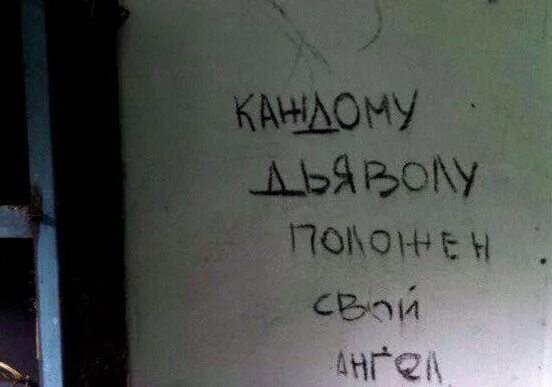 КАЖДОМУ
ДЬЯВОЛУ
ПОЛОЖЕН
СВОЙ
АНГЕЛ